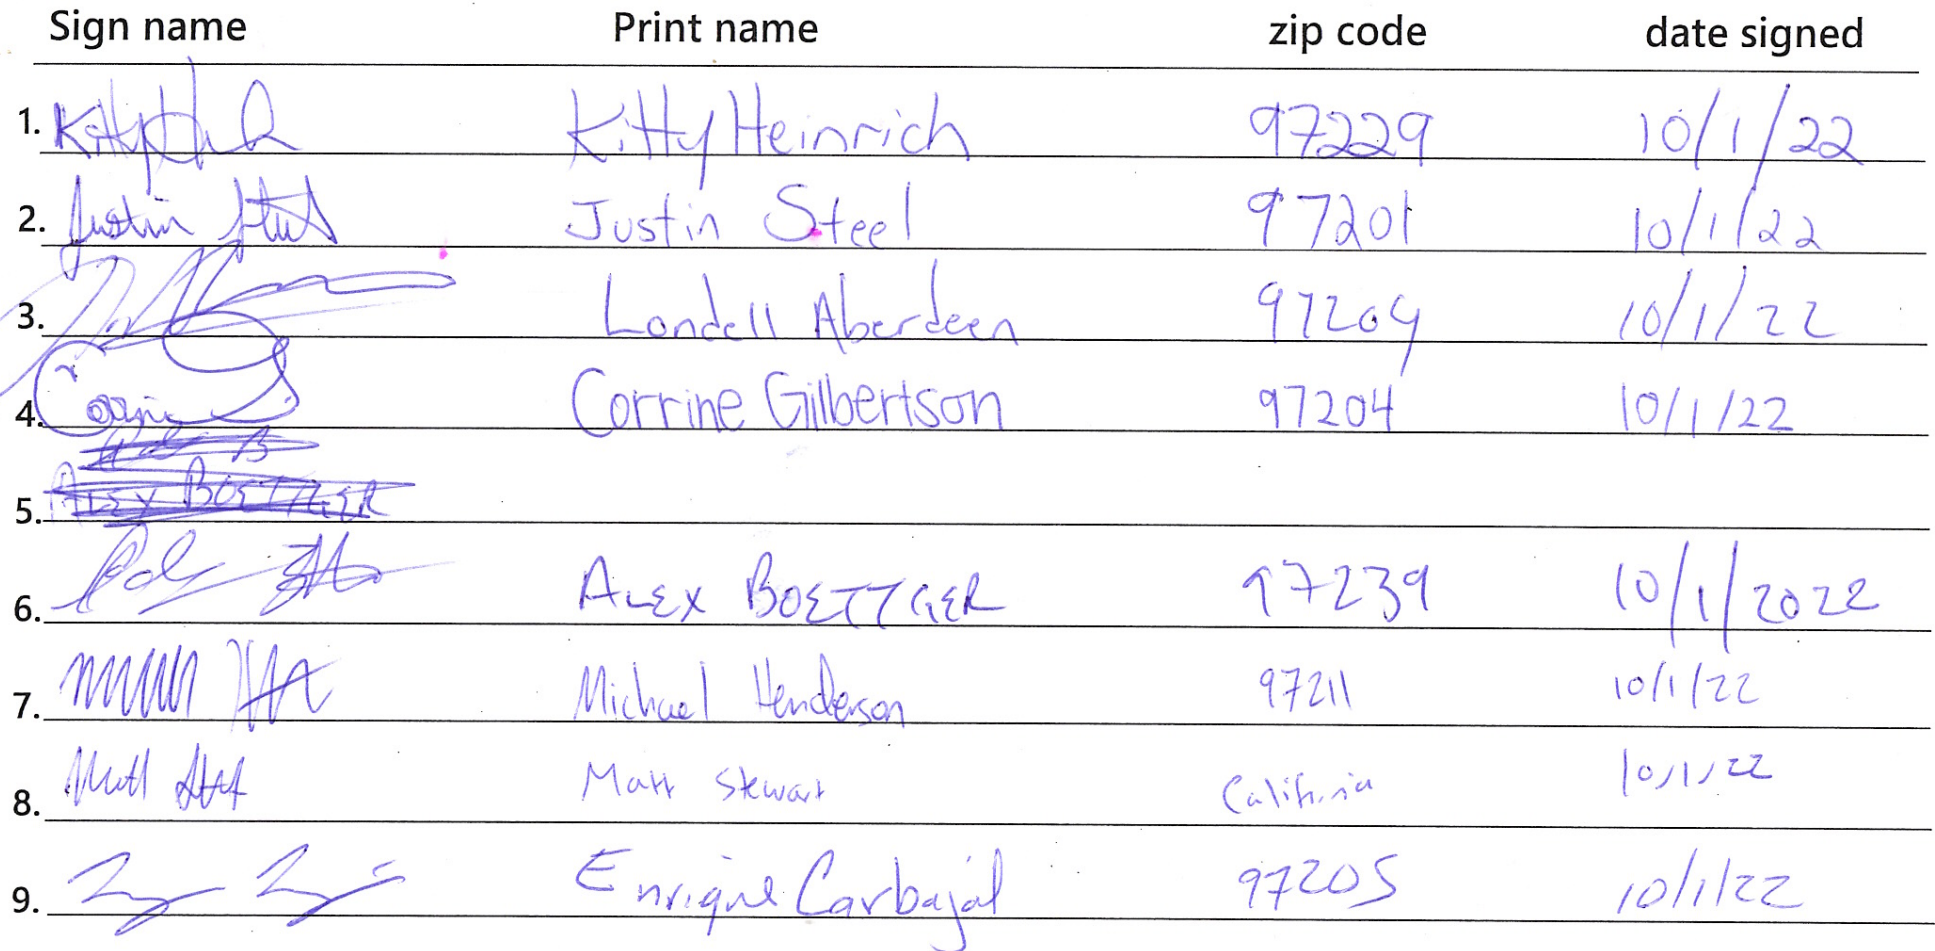 Sign name Print name zip code date signed
1. Kitty Heinrich 97229 10/1/22
2. Justin Justin Steel 97201 10/1/22
3. Londell Aberdeen 97209 10/1/22
4. Corrine Corrine Gilbertson 97204 10/1/22
5. ALEX BOETTGER
6. ALEX BOETTGER 97239 10/1/2022
7. Michael Henderson 97211 10/1/22
8. Matt Matt Stewart California 10/1/22
9. Enrique Carbajal 97205 10/1/22